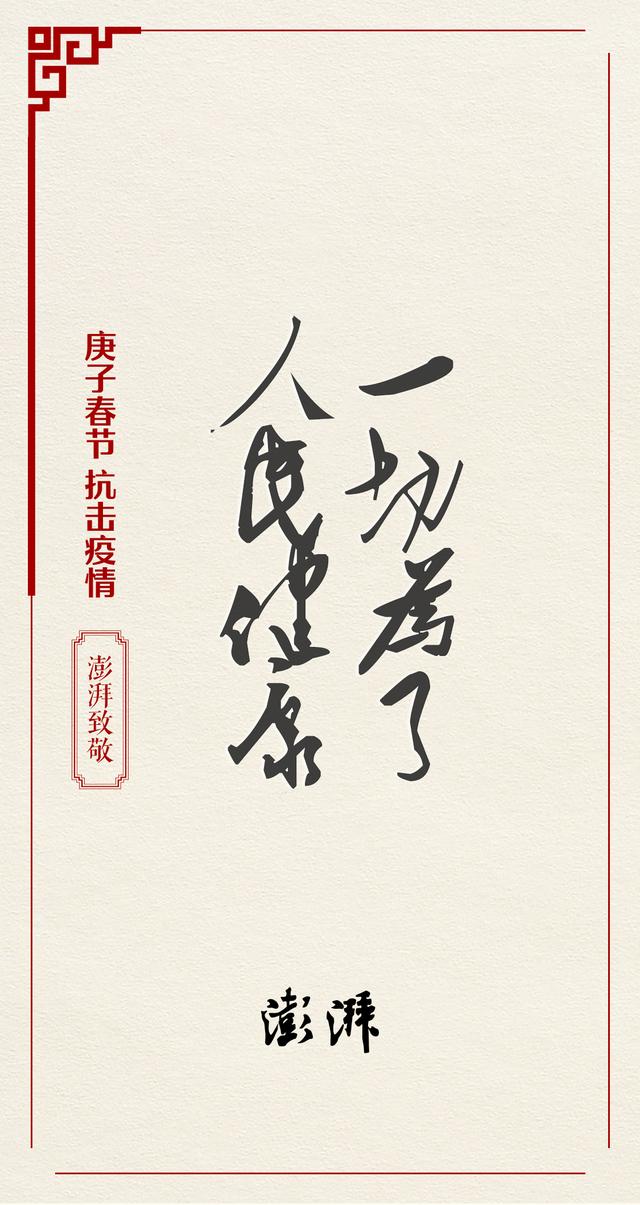 一切為了
人民健康
庚子春节 抗击疫情
澎湃致敬
澎湃